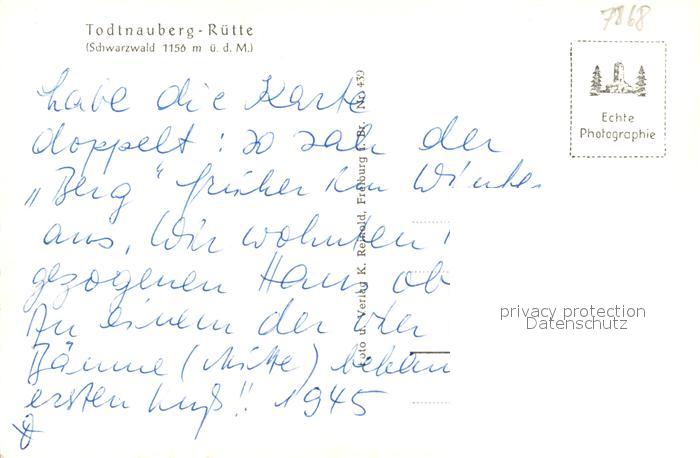 7868
Todtnauberg - Rütte
(Schwarzwald 1156 m ü. d. M.)
Echte
Photographie
habe die Karte
doppelt : so sah der
„Berg“ früher im Winter
aus. Wir wohnten i
gezogenen Haus ob
An einem der vier
Bäume (Mitte) bekam
ersten Kuß!! 1945
Foto u. Verlag K. Reinold, Freiburg i. Br. Nr. 439
privacy protection
Datenschutz